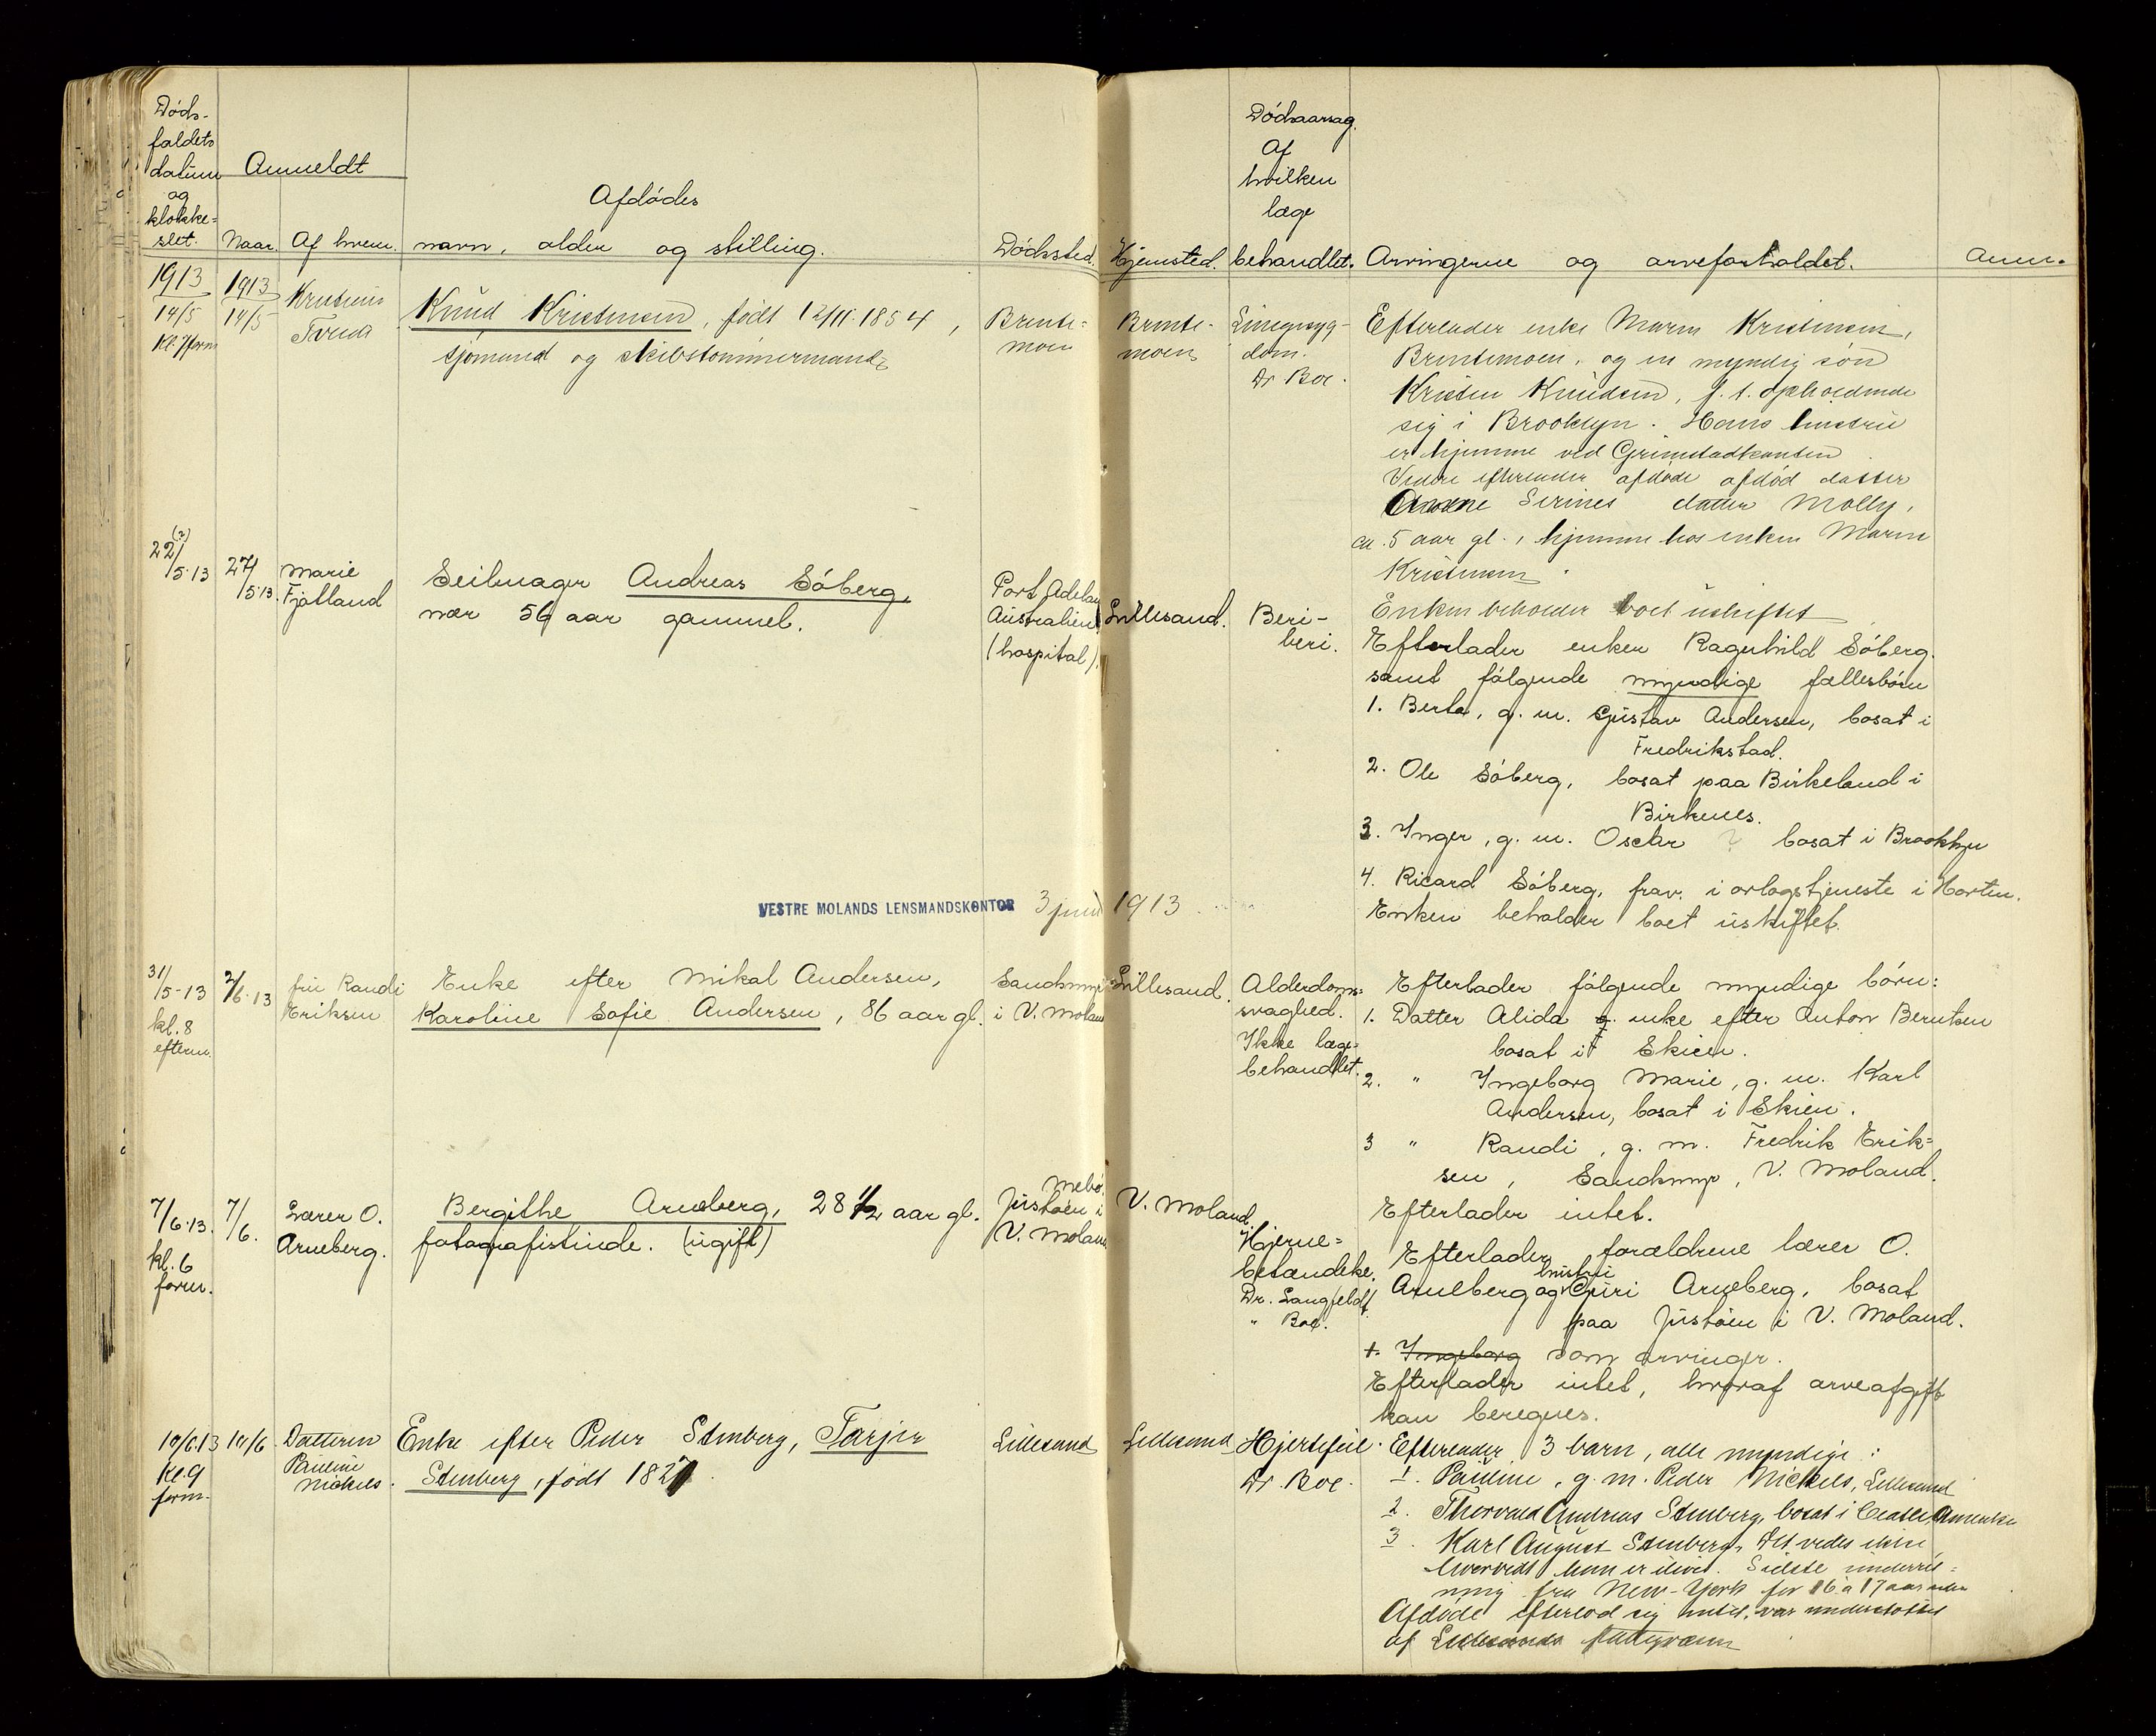 Døds-
faldets
datum
og
klokke-
slet.
Anmeldt
Naar.
Af hvem.
Afdødes
navn, alder og stilling.
Dødssted.
Hjemsted.
Dødsaarsag.
Af
hvilken
læge
behandlet.
Arvingerne og arveforholdet.
Anm.
1913
14/5
Kl. 7 form
1913
14/5
Knud Kristensen, født 12/11 1854,
sjømand og skibstømmermand
Brente-
moen
Brente-
moen
dom.
Dr Boe.
Efterlader enke Maren Kristensen,
Brentemoen, og en myndig søn
Kristen Knudsen, f. t. opholdende
sig i Brooklyn. Hans hustru
er hjemme ved Grimstadkanten
Videre efterlader afdøde afdød datter
Serines datter Molly,
ca. 5 aar gl., hjemme hos enken Maren
Kristensen.
Enken beholder boet uskiftet
22/5.13 (?)
27/5.13.
Marie
Fjalland
Seilmager Andreas Søberg,
nær 56 aar gammel.
Port Adelai
Australien
(hospital).
Lillesand.
Beri-
beri.
Efterlader enken Ragnhild Søberg.
samt følgende myndige fællesbørn
1. Berta, g. m. Gustav Andersen, bosat i
Fredrikstad.
2. Ole Søberg, bosat paa Birkeland i
Birkenes.
3. Inger, g. m. Oscar ? bosat i Brooklyn
4. Ricard Søberg, frav. i orlogstjeneste i Horten.
Enken beholder boet uskiftet.
VESTRE MOLANDS LENSMANDSKONTOR 3 juni 1913
31/5-13
kl. 8
efterm.
2/6.13
fru Randi
Eriksen
Enke efter Mikal Andersen,
Karoline Sofie Andersen, 86 aar gl.
i V. Moland
Lillesand.
Alderdoms-
svaghed.
Ikke læge-
behandlet.
Efterlader følgende myndige børn:
1. Datter Alida enke efter Anton Berntsen
bosat i Skien.
2. " Ingeborg Marie, g. m. Karl
Andersen, bosat i Skien.
3 " Randi, g. m. Fredrik Erik-
sen, V. Moland.
Efterlader intet.
7/6.13.
kl. 6
form.
7/6.
Lærer O.
Arneberg.
Bergithe Arneberg, 28 1/2 aar gl.
fotografistinde. (ugift)
Justøen i
V. Moland
V. Moland.
Hjerne-
betændelse.
Dr. Langfeldt
" Boe.
Efterlader forældrene lærer O.
Arneberg og hustru Guri Arneberg, bosat
paa Justøen i V. Moland.
1. Ingeborg som arvinger.
Efterlader intet, hvoraf arveafgift
kan beregnes.
10/6.13
Kl. 9
form.
10/6
Datteren
Pauline
Nickels.
Enke efter Peder Stenberg, Tarjer
Stenberg, født 182
Lillesand
Lillesand
Hjertefeil.
Dr. Boe.
Efterlader 3 barn, alle myndige:
1. Pauline, g. m. Peder Nickels, Lillesand
2. Thorvald Andreas Stenberg, bosat i Ceatle, Amerika
3. Karl August Stenberg, Det vedes ikke
hvorvidt han er ilive. Sidste underret-
ning fra New-York for 16 a 17 aar siden
Afdøde efterlod sig intet, var understøttet
af Lillesands fattigvæsen